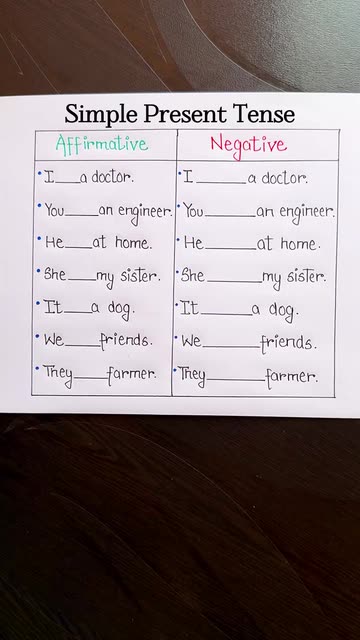 Simple Present Tense
Affirmative Negative
•I____a doctor. •I________a doctor.
•You_____an engineer. •You________an engineer.
•He_____at home. •He________at home.
•She_____my sister. •She________my sister.
•It_____a dog. •It________a dog.
•We_____friends. •We________friends.
•They_____farmer. •They________farmer.